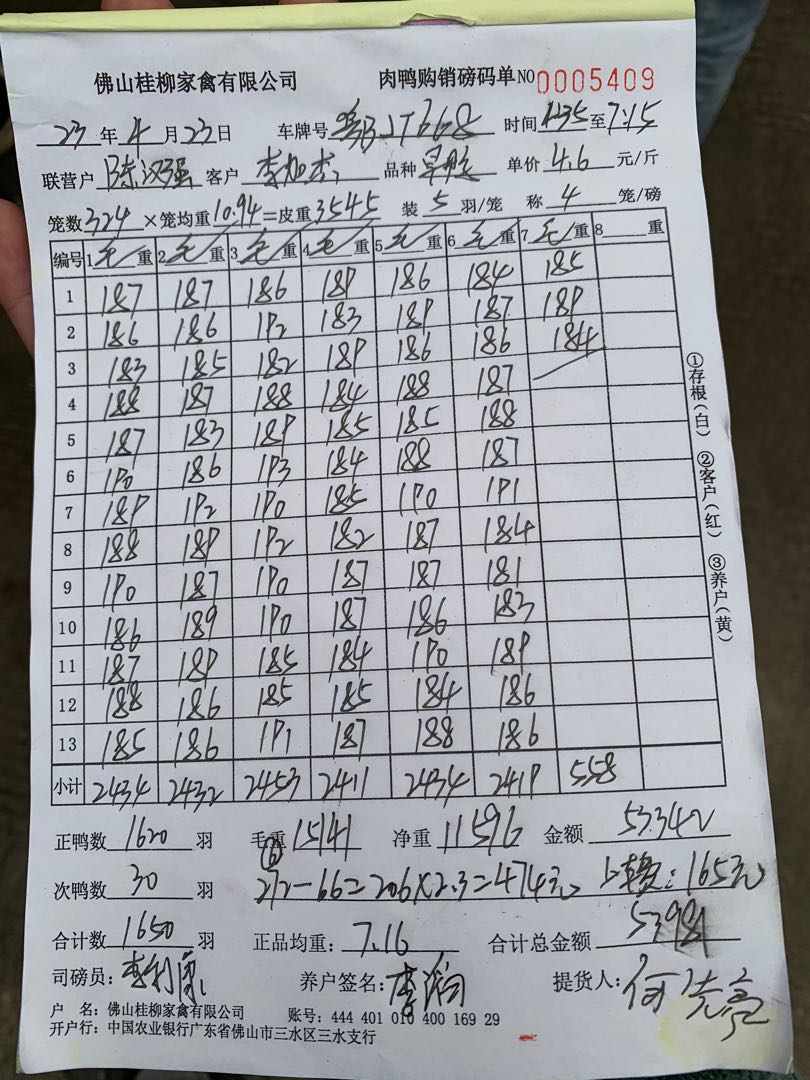 佛山桂柳家禽有限公司 肉鸭购销磅码单 NO 0005409
23 年 4 月 23 日 车牌号 时间 至 7:15
联营户 陈汉强 客户 李加杰 品种 单价 4.6 元/斤
笼数 324 ×笼均重 10.94 =皮重 3545 装 5 羽/笼 称 4 笼/磅
编号 1 毛 重 2 毛 重 3 毛 重 4 毛 重 5 毛 重 6 毛 重 7 毛 重 8 重
1 187 187 186 189 186 184 185
2 186 186 192 183 189 187 189
3 183 185 182 189 186 186 184
4 188 187 188 184 188 187
5 187 183 189 185 185 188
6 190 186 193 184 188 187
7 189 192 190 185 190 191
8 188 189 192 182 187 184
9 190 187 190 187 187 181
10 186 189 190 187 186 183
11 187 189 185 184 190 189
12 188 186 185 185 184 186
13 185 186 191 187 188 186
小计 2434 2432 2453 2411 2434 2419 558
①存根(白) ②客户(红) ③养户(黄)
正鸭数 1620 羽 毛重 15141 净重 11596 金额 53342
次鸭数 30 羽 272-66=206×2.3=474元 165元
合计数 1650 羽 正品均重: 7.16 合计总金额 53981
司磅员: 养户签名: 提货人:
户 名: 佛山桂柳家禽有限公司 账号: 444 401 010 400 169 29
开户行: 中国农业银行广东省佛山市三水区三水支行